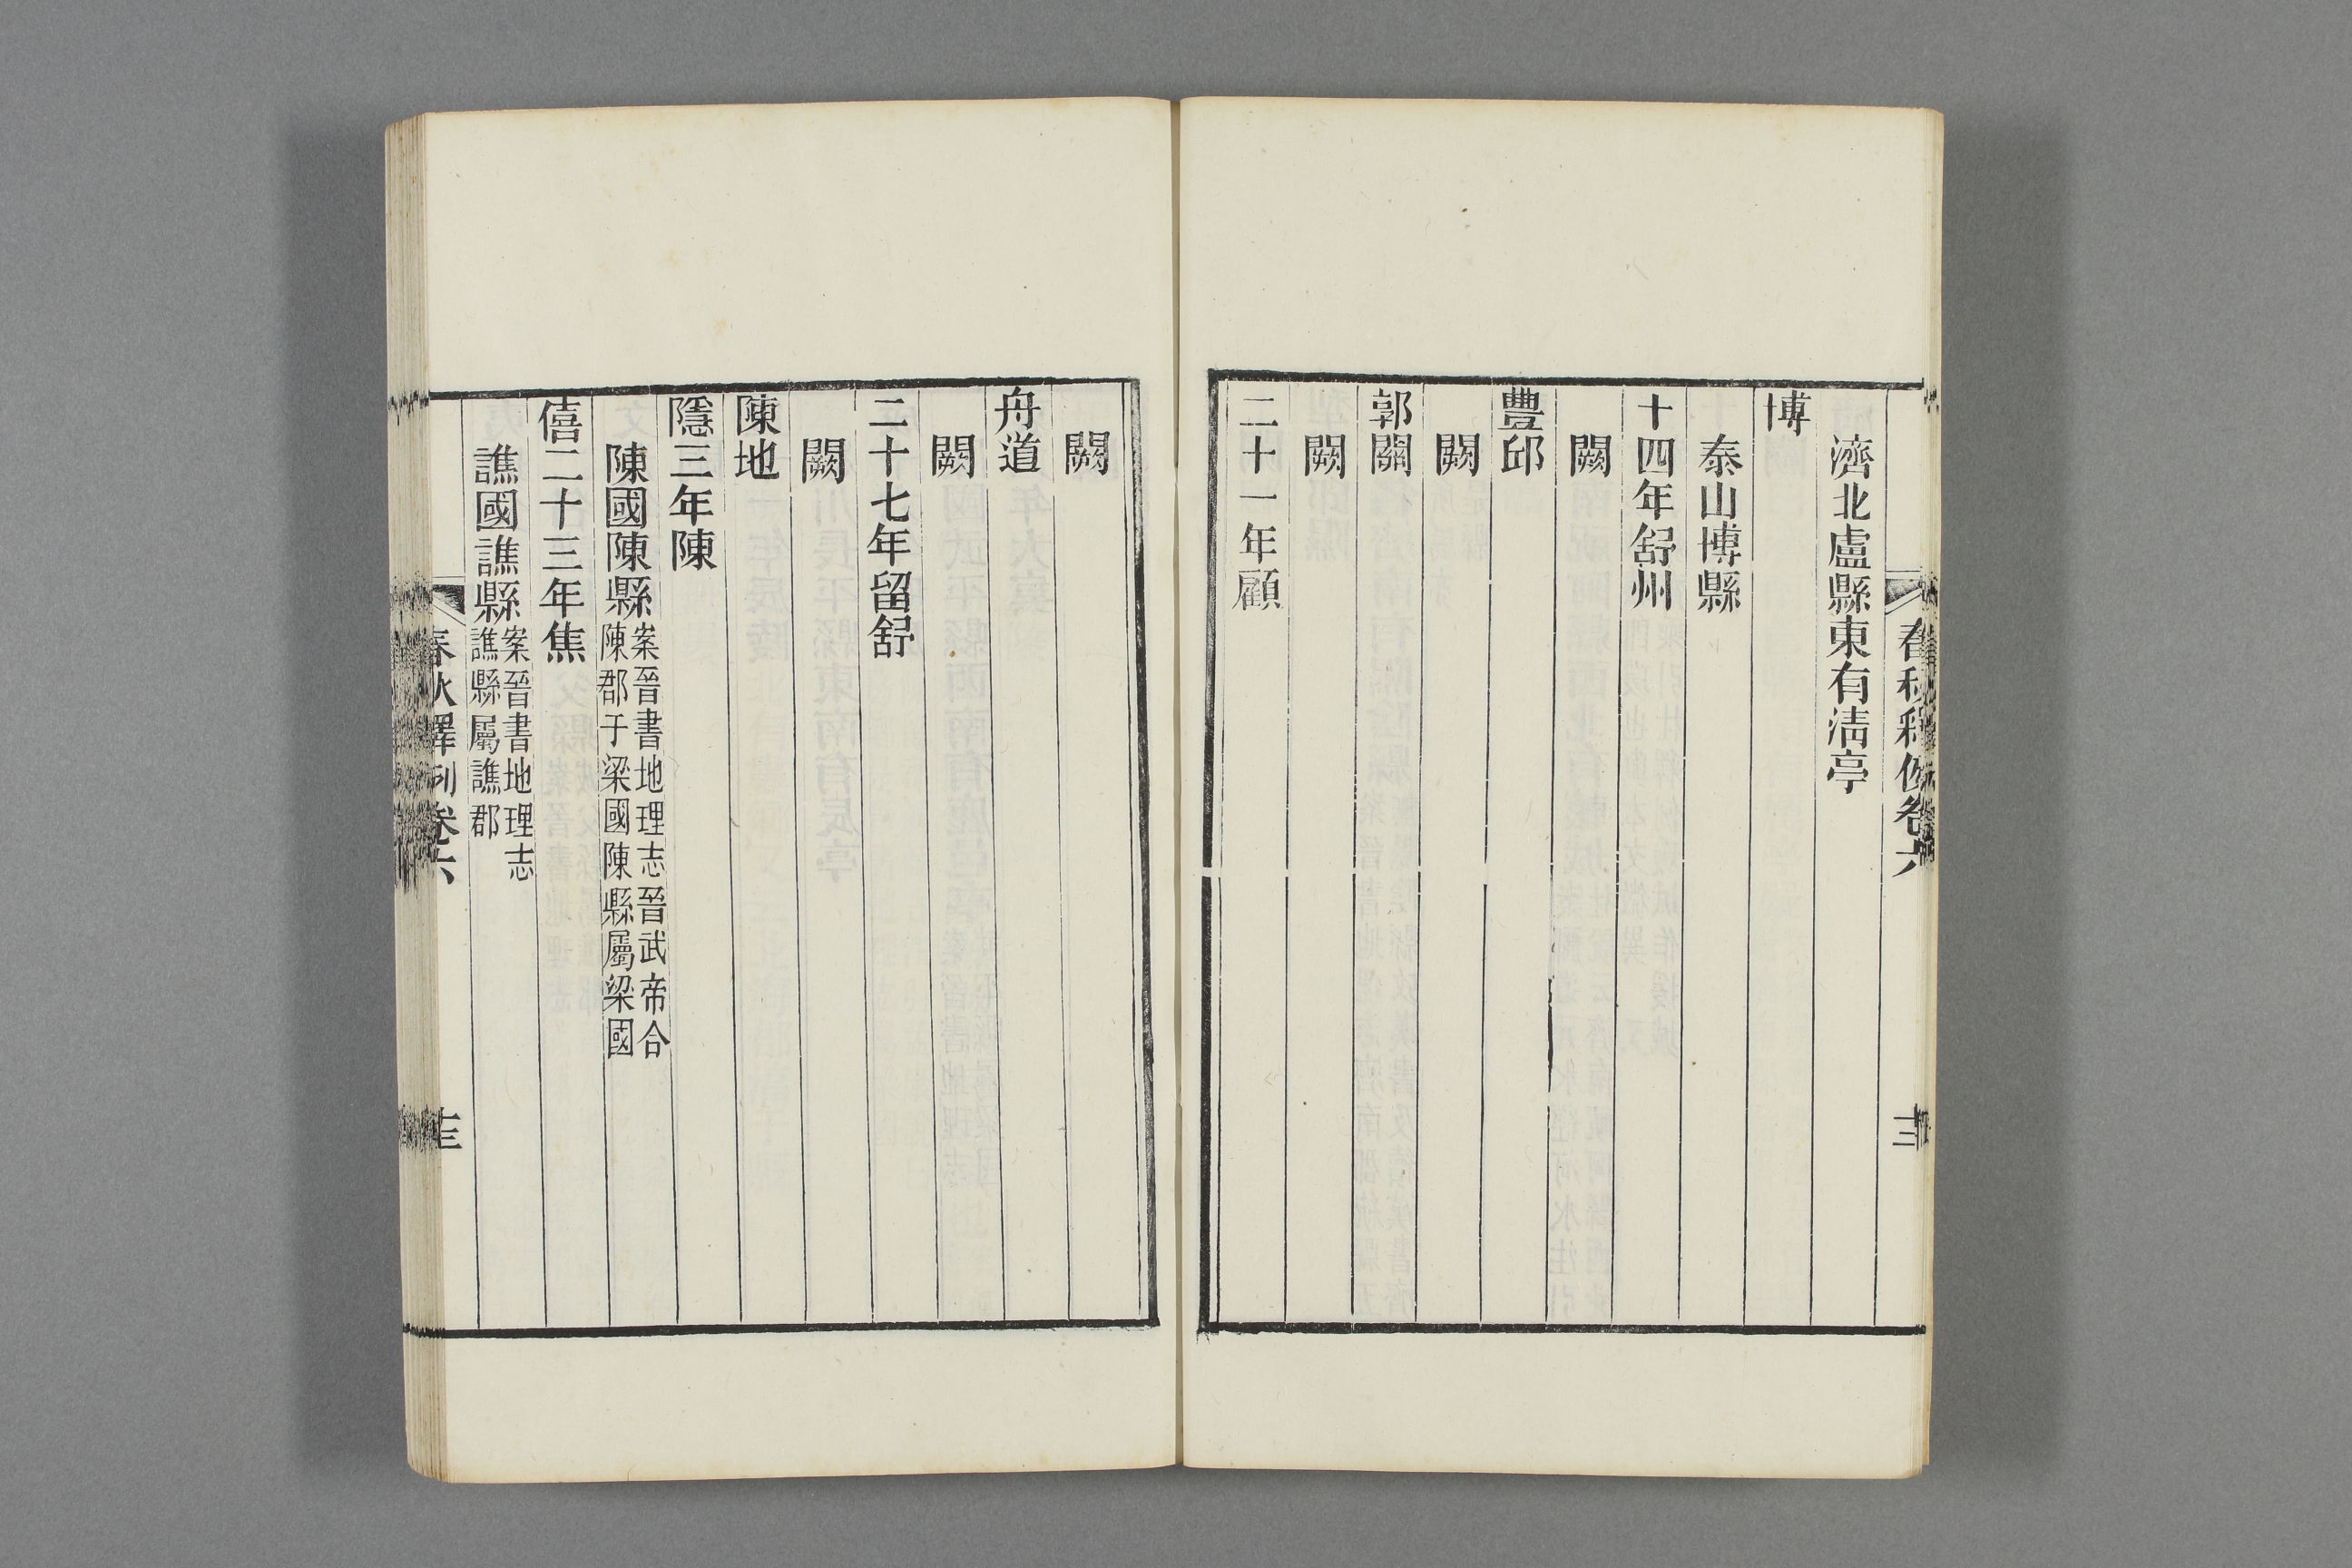 春秋釋例卷六
濟北盧縣東有淸亭
博
泰山博縣
十四年舒州
闕
豐邱
闕
郭關
闕
二十一年顧
闕
舟道
闕
二十七年留舒
闕
陳地
隱三年陳
陳國陳縣案晉書地理志晉武帝合
陳郡于梁國陳縣屬梁國
僖二十三年焦
譙國譙縣案晉書地理志
譙縣屬譙郡
春秋釋例卷六